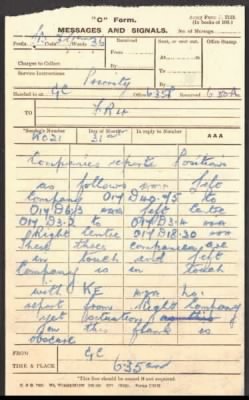 "C" Form.
MESSAGES AND SIGNALS.
Army Form C. 2123.
(In books of 100.)
No. of Message
Prefix Code Words 36
Received
From
By
Sent, or sent out
At
To
By
Office Stamp
Charges to Collect
Service Instructions Priority
Handed in at GE Office 635 Received 6.50
TO
Sender's Number
Day of Month
In reply to Number
AAA
31st
Companies report Positions
as follows aaa Left
Company O17 D40.95 to
O17 D6.3 aaa left centre
O17 D3.2 to O17 D3.4 aaa
Right Centre O17 D18.30 aaa
These three companies are
in touch and left
Company is in touch
with KE aaa no
report from Right Company
yet situation
on this flank is
obscure
FROM GE
TIME & PLACE 635
*This line should be erased if not required.